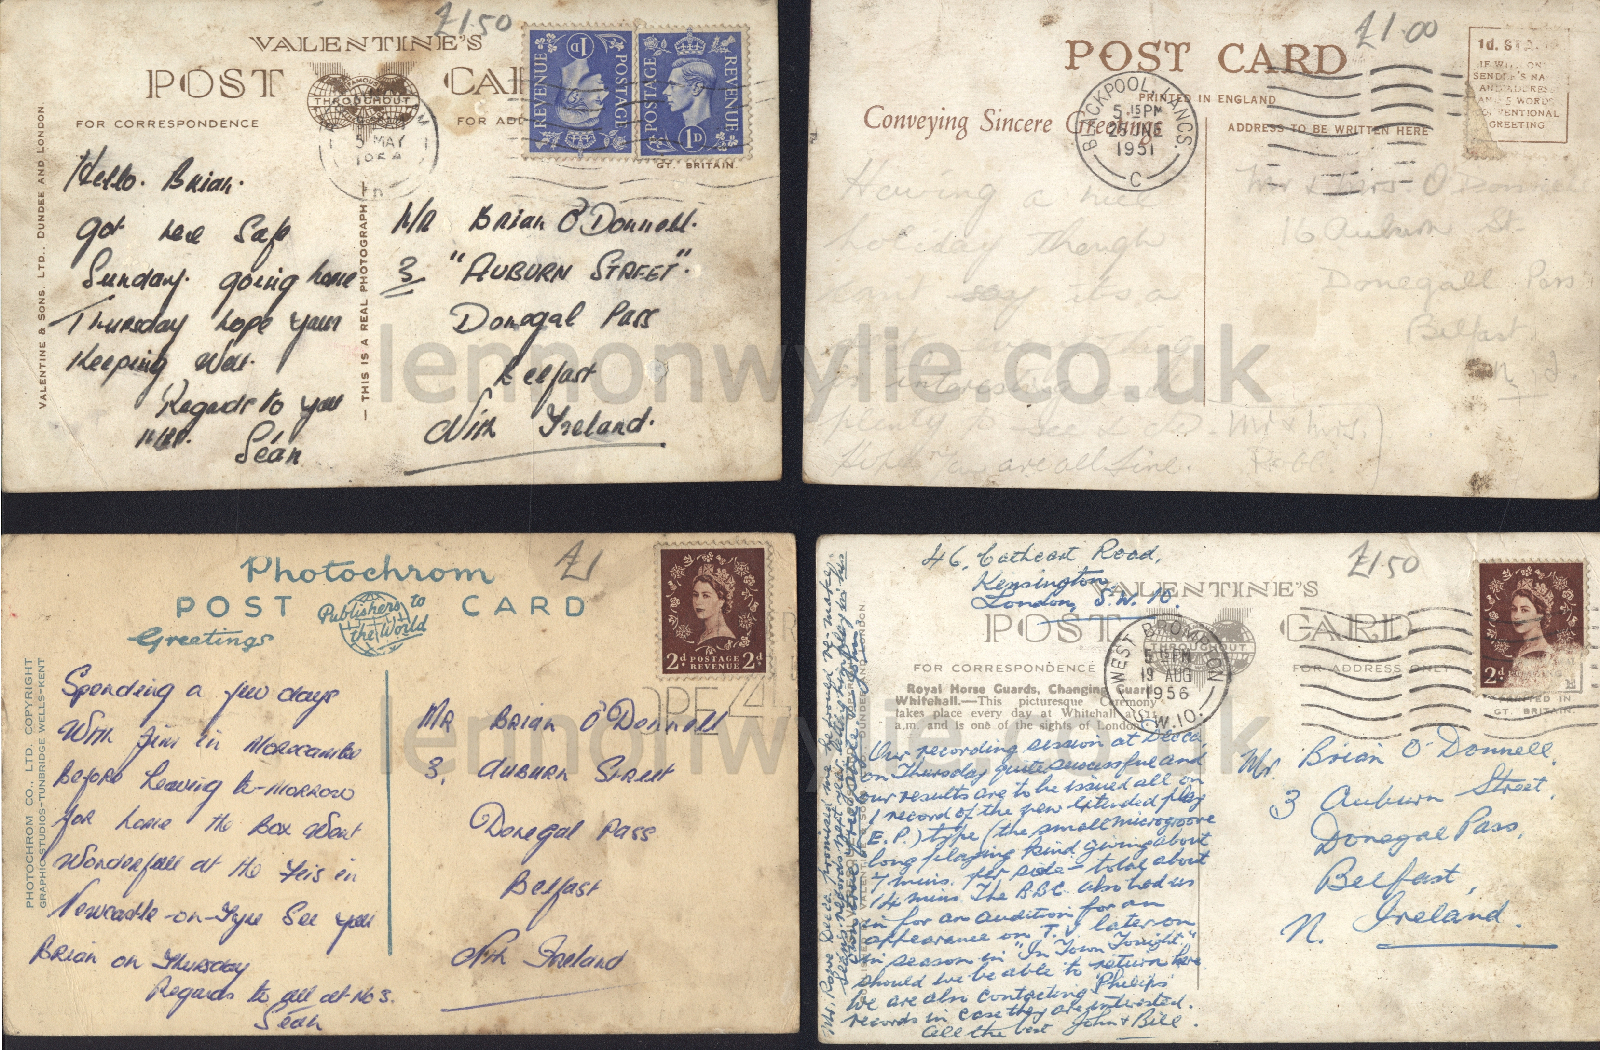 £1.50
VALENTINE'S
POST CARD
THROUGHOUT
FOR CORRESPONDENCE
REVENUE POSTAGE 1D
POSTAGE REVENUE 1D
GT. BRITAIN.
5 MAY
VALENTINE & SONS, LTD., DUNDEE AND LONDON
— THIS IS A REAL PHOTOGRAPH
Hello. Brian.
Got here Safe
Sunday. going home
Thursday hope your
Keeping Well.
Regards to you
Seán
Mr Brian O'Donnell.
3 "AUBURN STREET".
Donegal Pass
Belfast
Nth Ireland.
£1.00
POST CARD
PRINTED IN ENGLAND
Conveying Sincere Greetings
ADDRESS TO BE WRITTEN HERE
BLACKPOOL, LANCS.
5.15PM
1951
C
1d.
GREETING
Having a nice
holiday though
say its a
interesting and
plenty to see & do.
Hope you are all fine.
Mr & Mrs.
Robb.
Mr & Mrs O'Donnell
16 Auburn St.
Donegall Pass
Belfast
N. I.
lennonwylie.co.uk
£1
Photochrom
POST CARD
Publishers to
the World
Greetings
2d POSTAGE REVENUE 2d
PHOTOCHROM CO., LTD. COPYRIGHT
GRAPHIC STUDIOS-TUNBRIDGE WELLS-KENT
Spending a few days
With Jim in Morecambe
Before Leaving to-morrow
for home the Box Went
Wonderfull at the Feis in
Newcastle-on-Tyne See you
Brian on Thursday
Regards to all at No 3.
Seán
Mr Brian O'Donnell
3, Auburn Street
Donegal Pass
Belfast
Nth Ireland
£1.50
46, Cathcart Road,
Kensington,
London, S.W. 10.
VALENTINE'S
POST CARD
THROUGHOUT
FOR CORRESPONDENCE
FOR ADDRESS ONLY
WEST BROMPTON
19 AUG
1956
S.W.10.
2d
PRINTED IN
GT. BRITAIN.
Royal Horse Guards, Changing Guard,
Whitehall.—This picturesque Ceremony
takes place every day at Whitehall at
a.m. and is one of the sights of London.
Our recording session at Decca
on Thursday quite successful and
our results are to be issued all on
1 record of the new extended play
(E.P.) type (the small microgroove
long playing kind giving about
7 mins. per side – total about
14 mins. The B.B.C. also had us
in for an audition for an
appearance on T.V. later on
in season in "In Town Tonight,"
should we be able to return here
We are also contacting 'Philips'
records in case they are interested.
All the best John & Bill.
Mr Brian O'Donnell,
3 Auburn Street,
Donegal Pass,
Belfast,
N. Ireland.
lennonwylie.co.uk